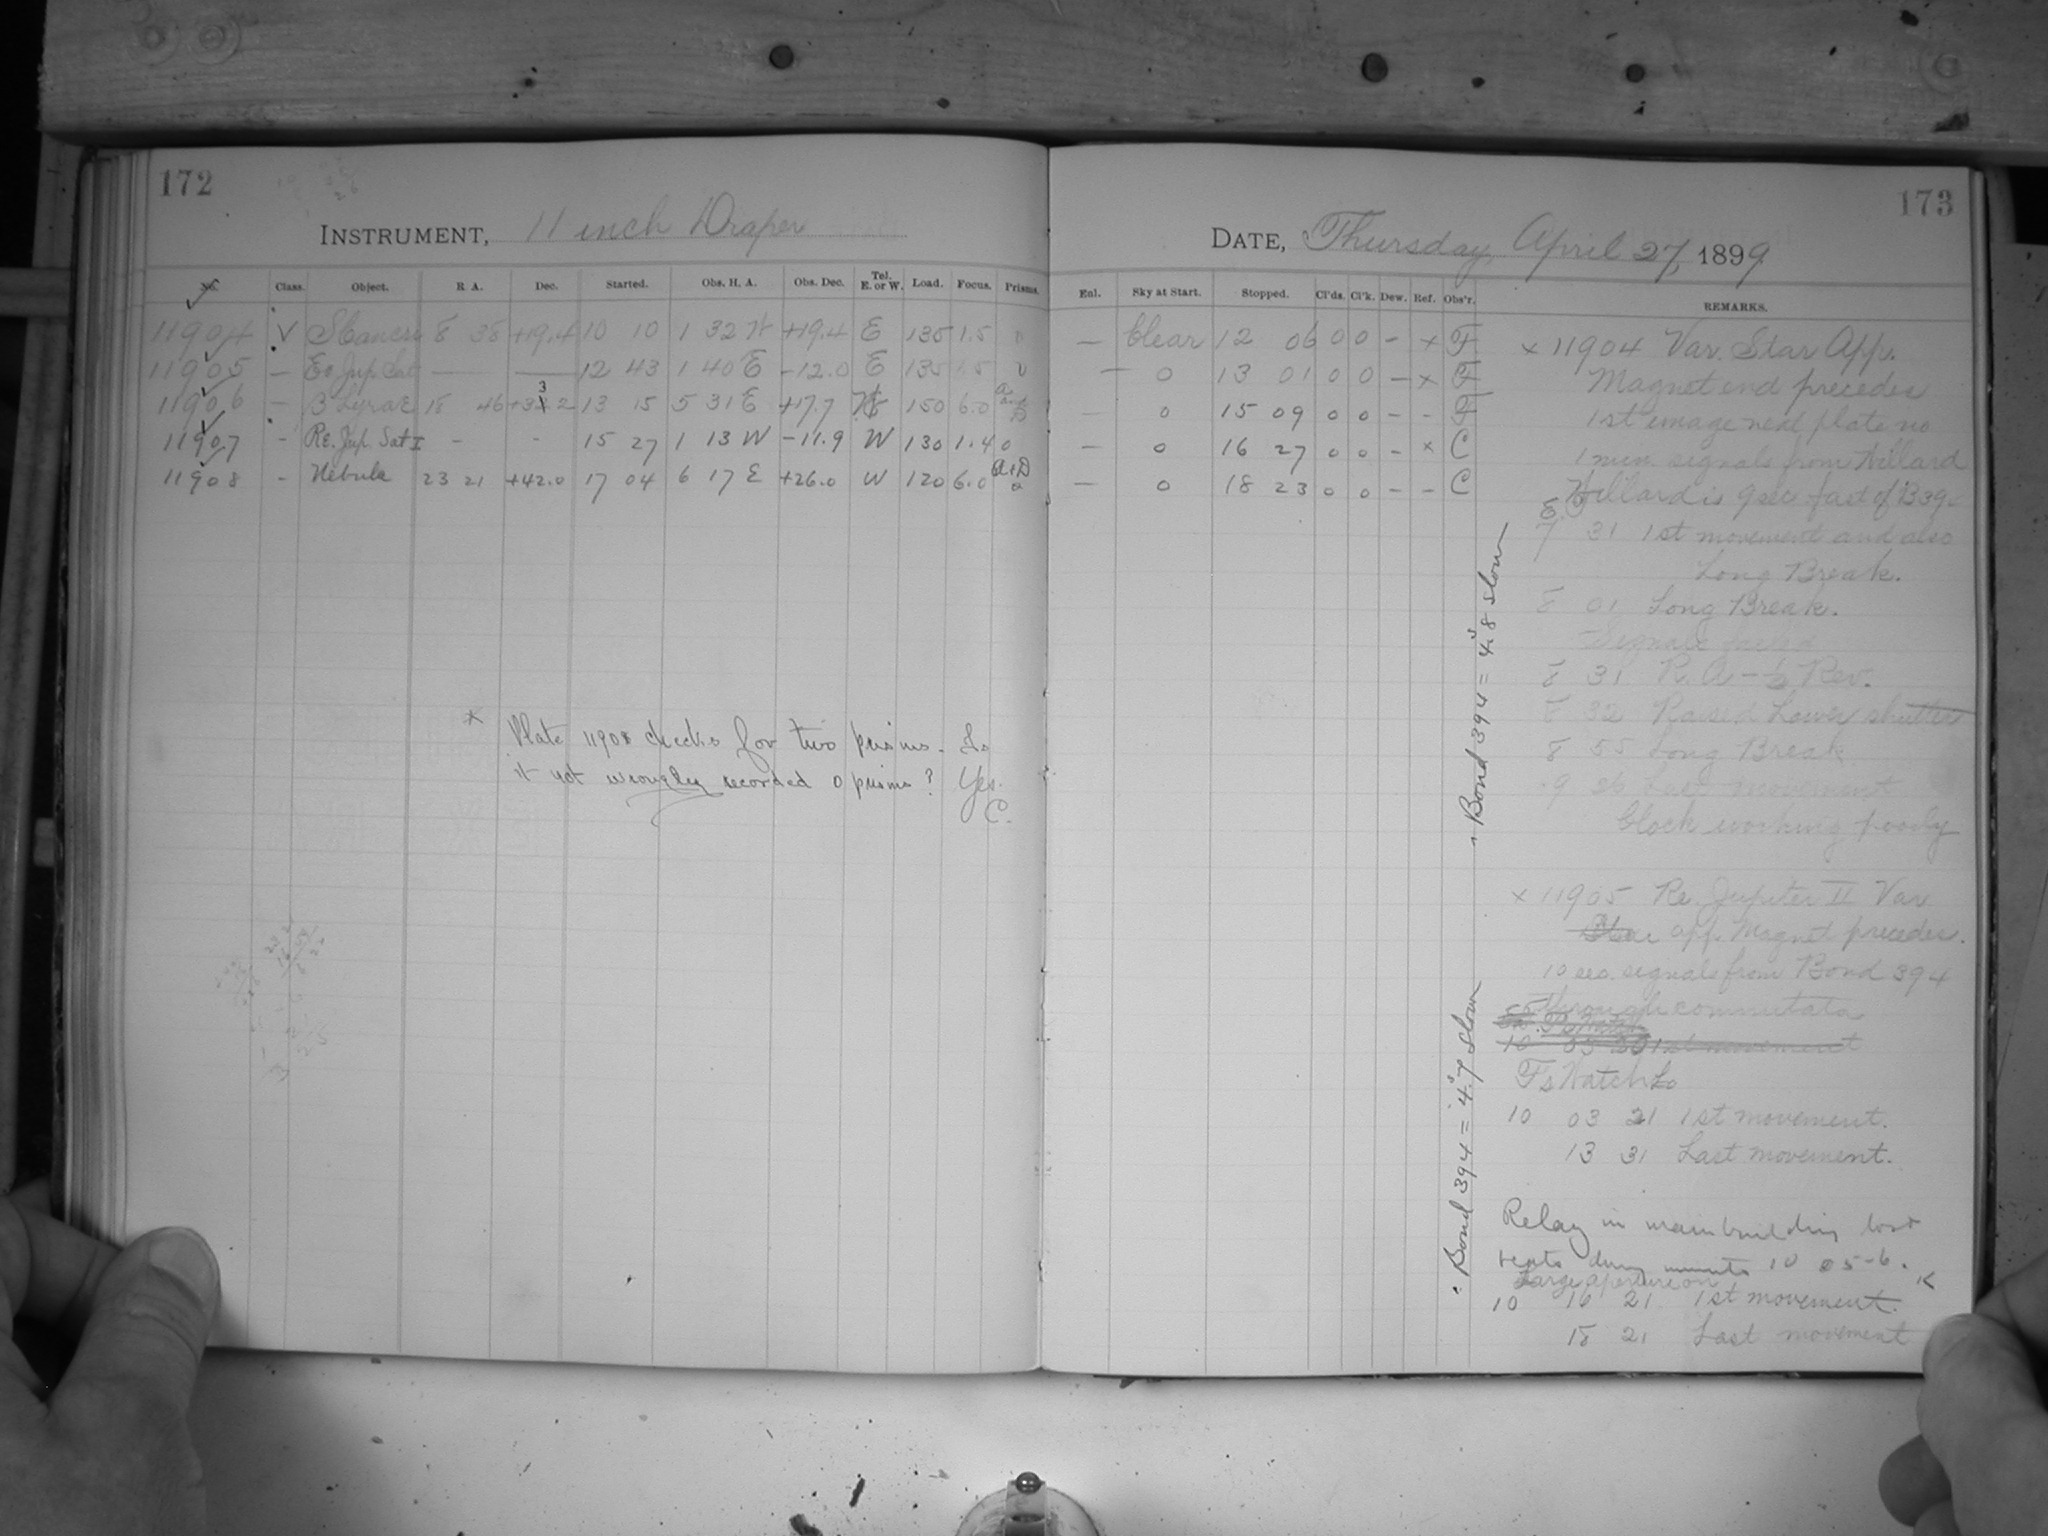 172
INSTRUMENT, 11 inch Draper
No. Class. Object. R. A. Dec. Started. Obs. H. A. Obs. Dec. Tel. E. or W. Load. Focus. Prisms.
11904 V S Cancri 8 38 +19.4 10 10 1 32 W +19.4 E 135 1.5 0
11905 — Ec. Jup. Sat — — 12 43 1 40 E -12.0 E 135 1.5 0
11906 — β Lyrae 18 46 +33.2 13 15 5 31 E +17.7 W 150 6.0
11907 - Re. Jup. Sat I - - 15 27 1 13 W -11.9 W 130 1.4 0
11908 - Nebula 23 21 +42.0 17 04 6 17 E +26.0 W 120 6.0 a+D
* Plate 11908 checks for two prisms. Is
it not wrongly recorded 0 prisms? Yes.
C.
173
DATE, Thursday, April 27, 1899
Enl. Sky at Start. Stopped. Cl'ds. Cl'k. Dew. Ref. Obs'r. REMARKS.
— Clear 12 06 0 0 - x F
— 0 13 01 0 0 - x F
— 0 15 09 0 0 - - F
— 0 16 27 0 0 - x C
— 0 18 23 0 0 - - C
x 11904 Var. Star App.
Magnet end precedes
1st image next plate no
1 min. signals from Willard
Willard is 9 sec fast of B 39.
7 31 1st movement and also
Long Break.
8 01 Long Break.
Signals failed
8 31 R. A - ½ Rev.
8 32 Raised Lower shutter
8 55 Long Break
9 26 Last movement
Clock working poorly
x 11905 Re. Jupiter II Var
app. Magnet precedes.
10 sec. signals from Bond 394
through commutator
10 03 20 1st movement
F's Watch
10 03 21 1st movement.
13 31 Last movement.
Relay in main building lost
beats during minute 10 05-6.
Large aperture on K
10 16 21 1st movement.
18 21 Last movement
Bond 394 = 4.8s slow
Bond 394 = 4.7s slow